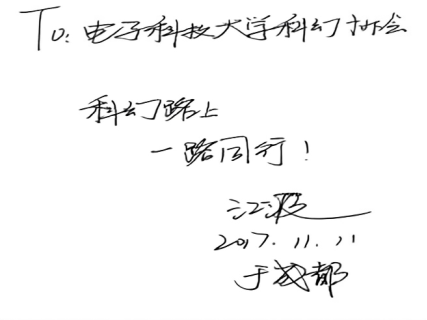 To: 电子科技大学科幻协会
科幻路上
一路同行!
江波
2017.11.11
于成都